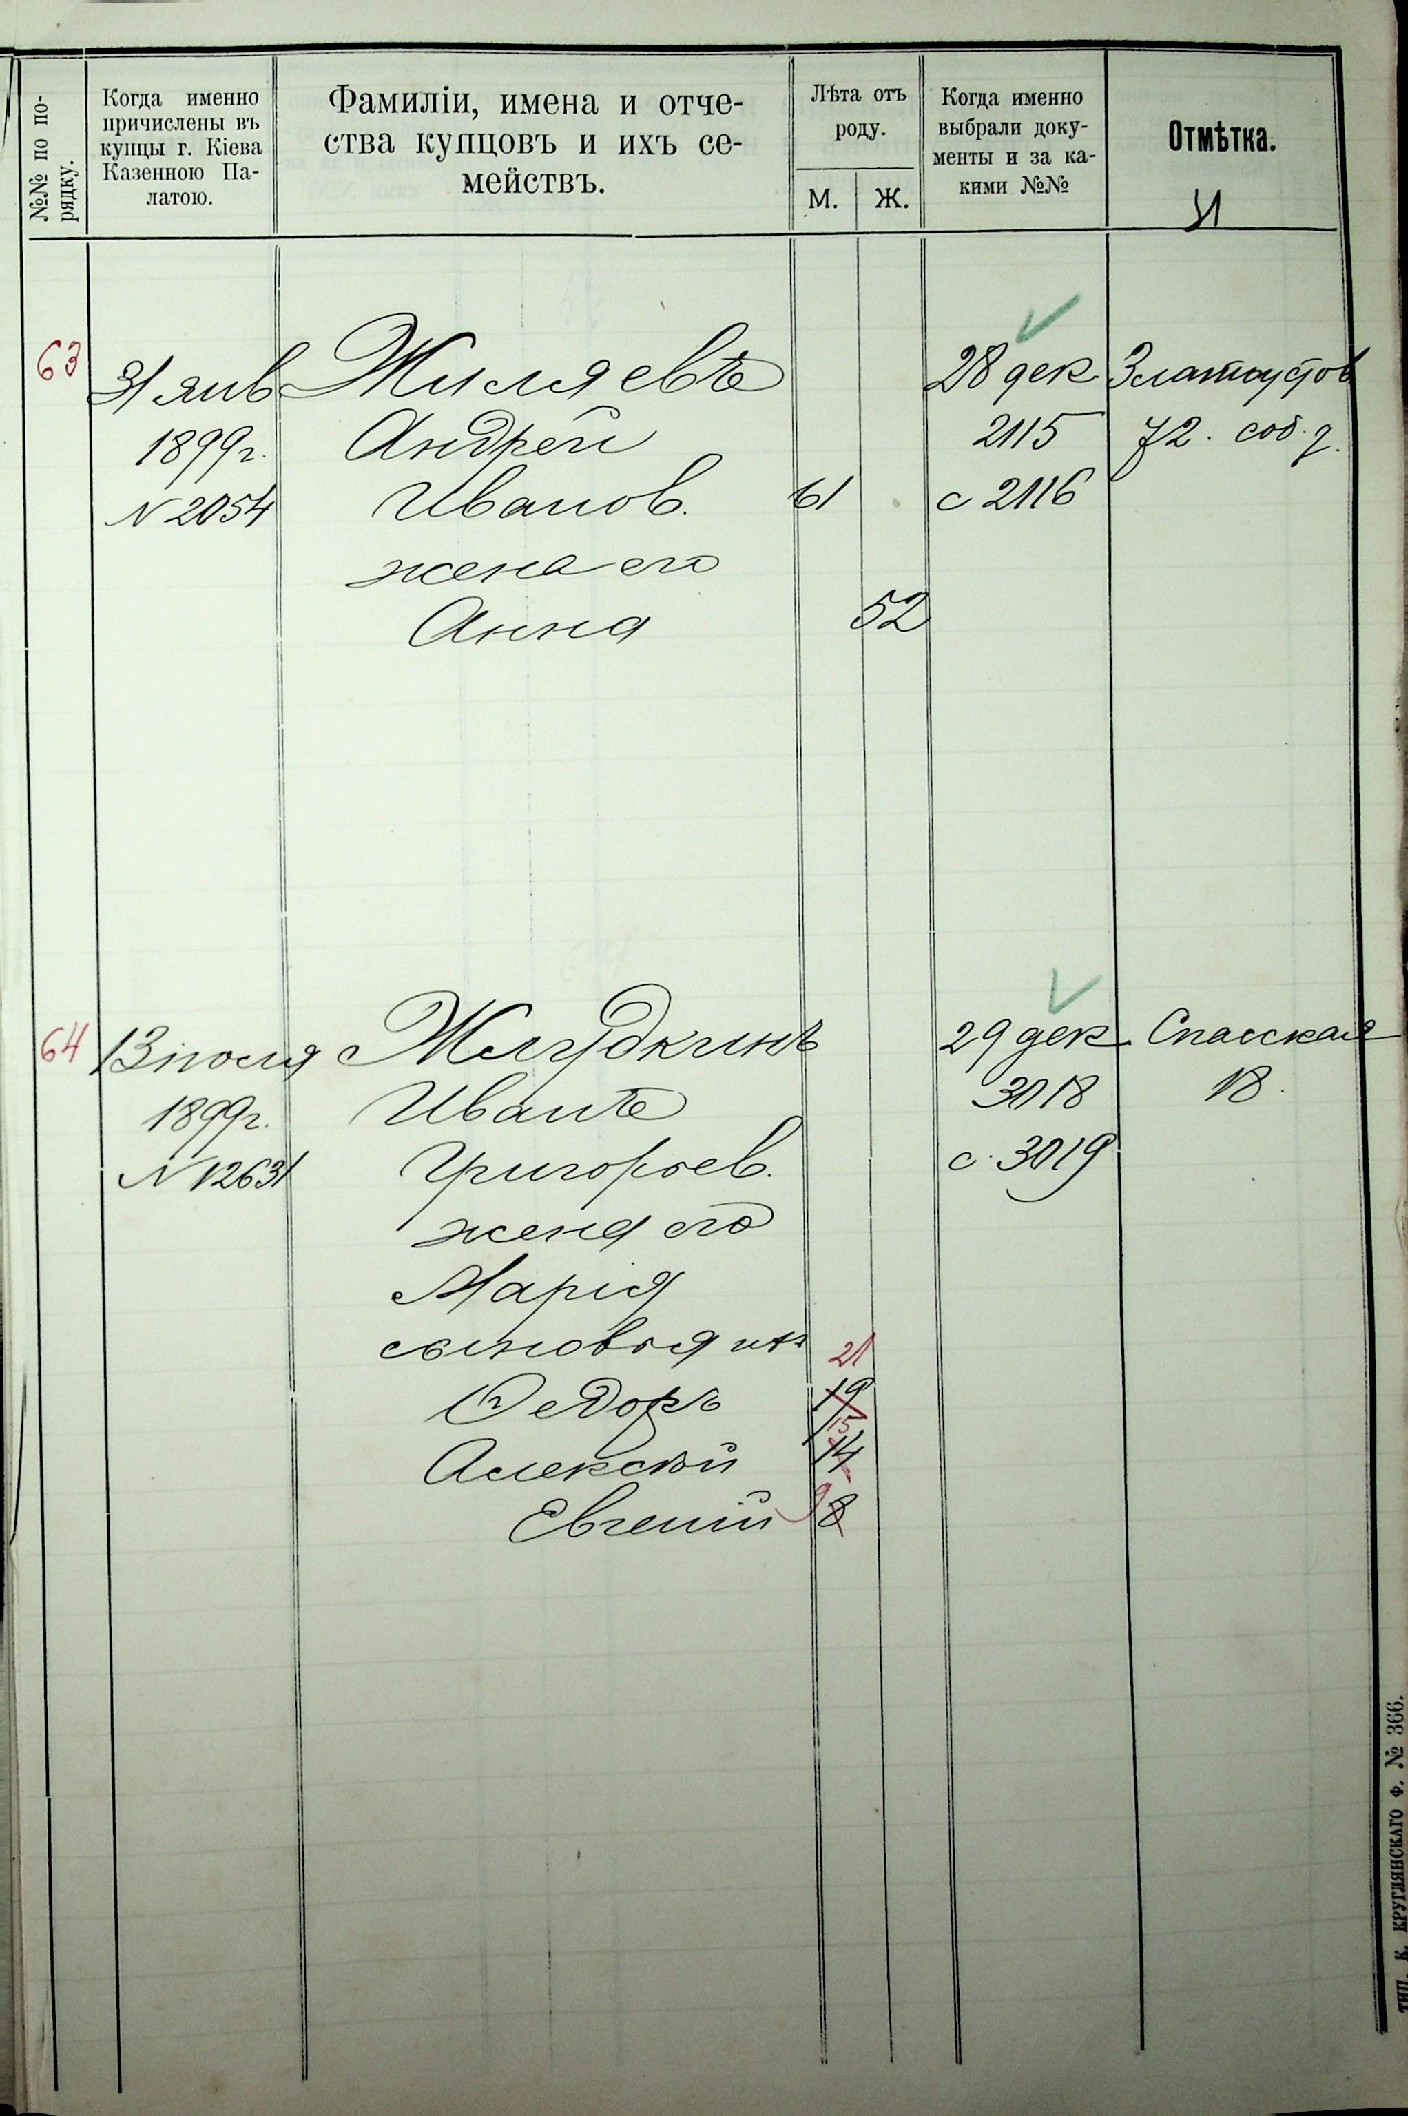 №№ по по-
рядку.
Когда именно
причислены въ
купцы г. Кіева
Казенною Па-
латою.
Фамиліи, имена и отче-
ства купцовъ и ихъ се-
мействъ.
Лѣта отъ
роду.
М. Ж.
Когда именно
выбрали доку-
менты и за ка-
кими №№
Отмѣтка.
63
31 янв
1899г.
N 2054
Жиляевъ
Андрей
Иванов.
жена его
Анна
61
52
28 дек
2115
с 2116
Златоустов
72. соб. д.
64
13 июля
1899г.
N 12631
Желудкинъ
Иванъ
Григорьев.
жена его
Марія
сыновья ихъ
Ѳедоръ
Алексѣй
Евгеній
21
19
15
14
9 8
29 дек
3018
с. 3019
Спасская
18.
ТИП. К. КРУГЛЯНСКАГО Ф. № 366.